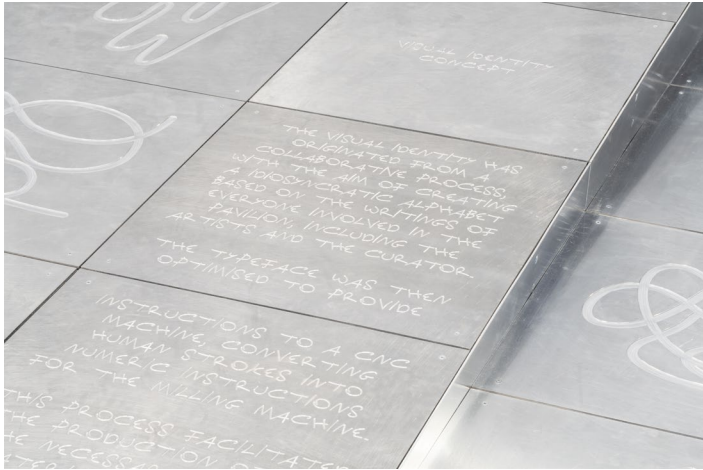 VISUAL IDENTITY
CONCEPT
THE VISUAL IDENTITY WAS
ORIGINATED FROM A
COLLABORATIVE PROCESS,
WITH THE AIM OF CREATING
A IDIOSYNCRATIC ALPHABET
BASED ON THE WRITINGS OF
EVERYONE INVOLVED IN THE
PAVILION, INCLUDING THE
ARTISTS AND THE CURATOR.
THE TYPEFACE WAS THEN
OPTIMISED TO PROVIDE
INSTRUCTIONS TO A CNC
MACHINE, CONVERTING
HUMAN STROKES INTO
NUMERIC INSTRUCTIONS
FOR THE MILLING MACHINE.
THIS PROCESS FACILITATED
THE PRODUCTION
THE